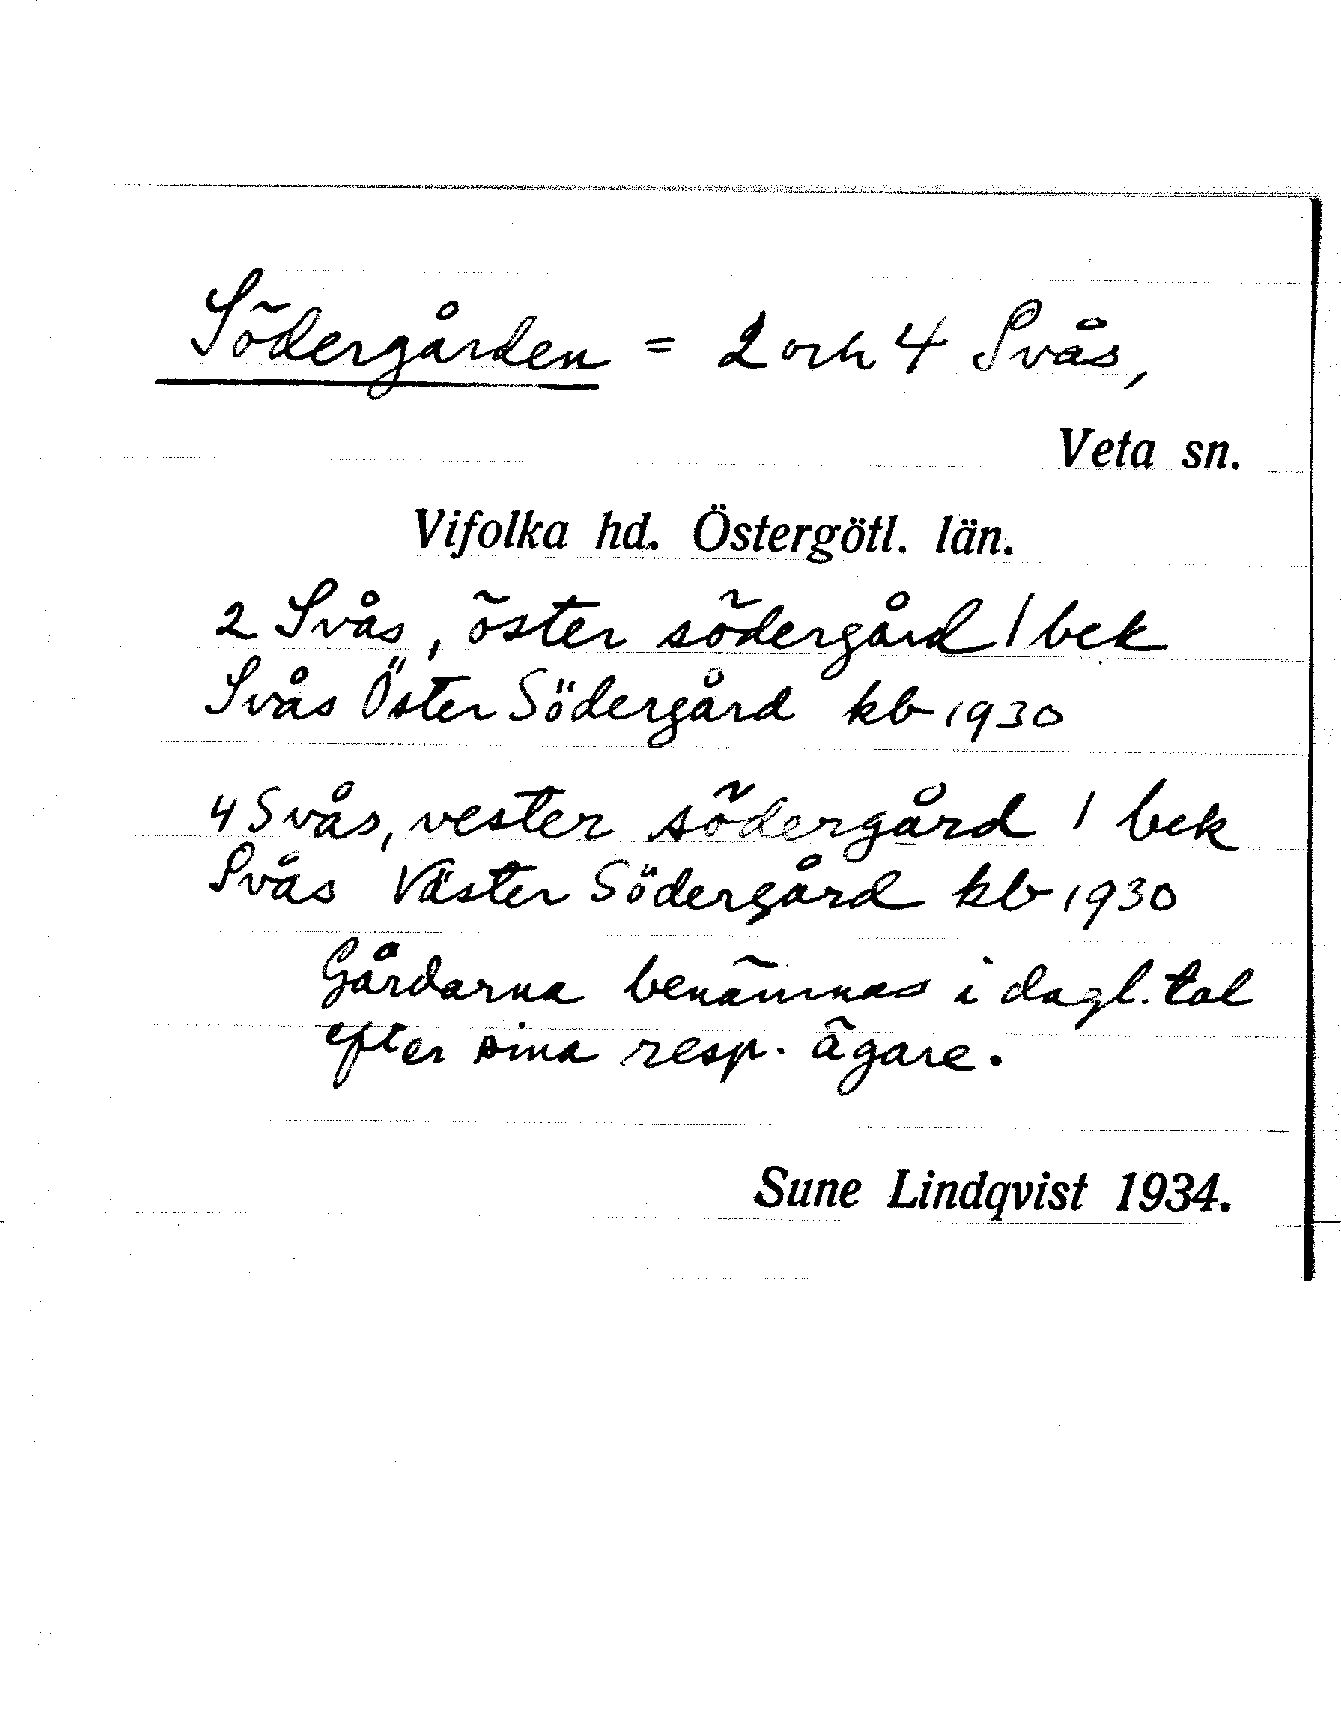 Södergården = 2 och 4 Svås,
Veta sn.
Vifolka hd. Östergötl. län.
2 Svås, öster södergård 1 bek
Svås Öster Södergård kb 1930
4 Svås, vester södergård 1 bek
Svås Väster Södergård kb 1930
Gårdarna benämnas i dagl. tal
efter sina resp. ägare.
Sune Lindqvist 1934.